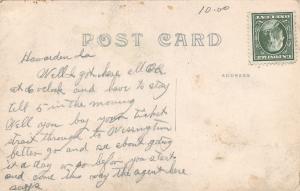 10.00
POST CARD
Hawarden Ia
Well I got here all O.K.
at 6 oclock and have to stay
till 5 in the morning
Well you buy your ticket
strait through to Wessington
better go and see about going
it a day or so before you start
and come this way the agent here
says
ADDRESS